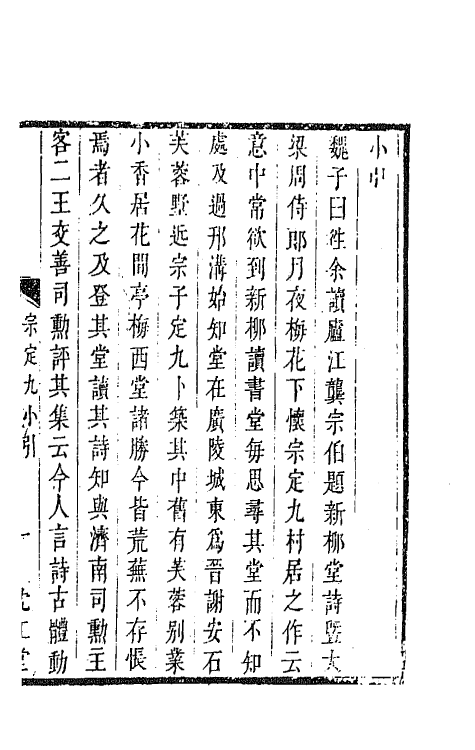 小引
魏子曰往余讀廬江龔宗伯題新柳堂詩暨大
梁周侍郎月夜梅花下懷宗定九村居之作云
意中常欲到新柳讀書堂每思尋其堂而不知
處及過邗溝始知堂在廣陵城東爲晉謝安石
芙蓉墅近宗子定九卜築其中舊有芙蓉別業
小香居花間亭梅西堂諸勝今皆荒蕪不存悵
焉者久之及登其堂讀其詩知與濟南司勲王
客二王交善司勲評其集云今人言詩古體動
宗定九小引
一